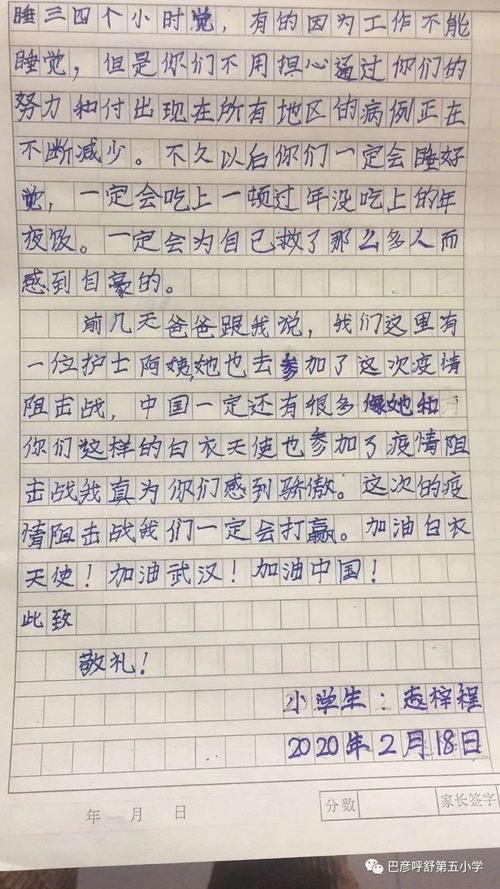 睡三四个小时觉，有的因为工作不能
睡觉，但是你们不用担心通过你们的
努力和付出现在所有地区的病例正在
不断减少。不久以后你们一定会睡好
觉，一定会吃上一顿过年没吃上的年
夜饭。一定会为自已救了那么多人而
感到自豪的。
前几天爸爸跟我说，我们这里有
一位护士阿姨,她也去参加了这次疫情
阻击战，中国一定还有很多像她和
你们这样的白衣天使也参加了疫情阻
击战我真为你们感到骄傲。这次的疫
情阻击战我们一定会打赢。加油白衣
天使！加油武汉！加油中国！
此致
敬礼！
小学生：赵梓程
2020年2月18日
年 月 日 分数 家长签字
巴彦呼舒第五小学